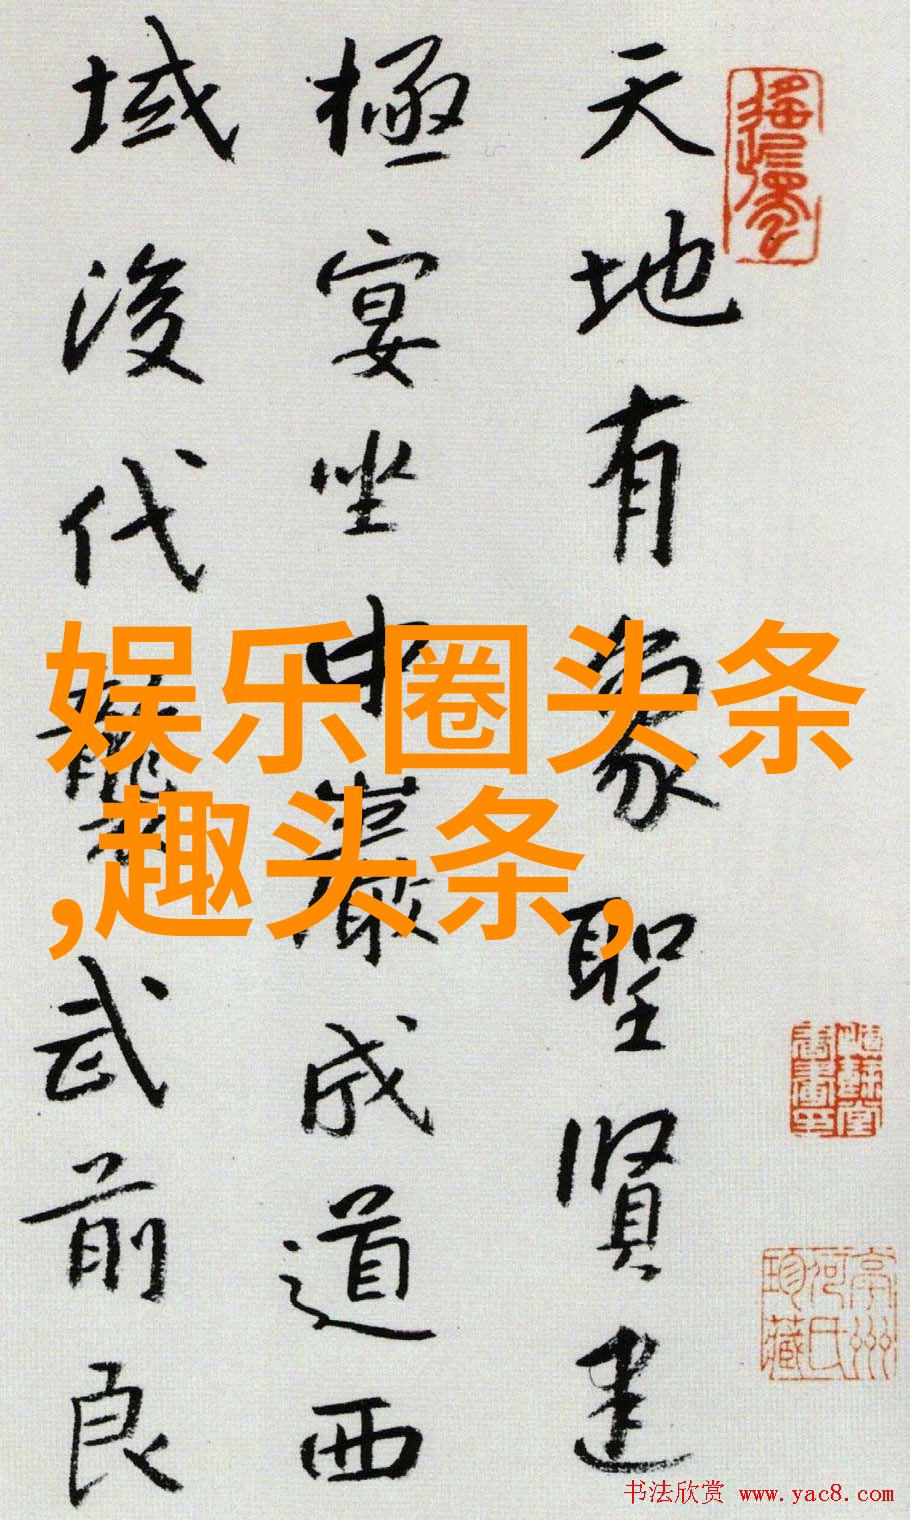 天地有象聖賢建
極宴坐中巖成道西
域後代襲武前良
娱乐圈头条
,趣头条,
书法欣赏 www.yac8.com